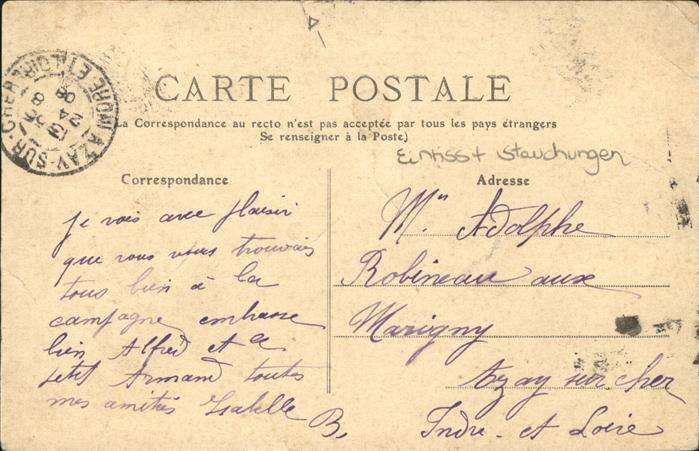 CARTE POSTALE
La Correspondance au recto n'est pas acceptée par tous les pays étrangers
Se renseigner à la Poste)
Einriss + Stauchungen
Correspondance
Je vois avec plaisir
que vous vous trouvais
tous bien à la
campagne embrasse
bien Alfred et le
petit Armand toutes
mes amitiés Isabelle B.
Adresse
Mn Adolphe
Robineau aux
Marigny
Azay sur cher
Indre et Loire
AZAY-SUR-CHER
INDRE ET LOIRE